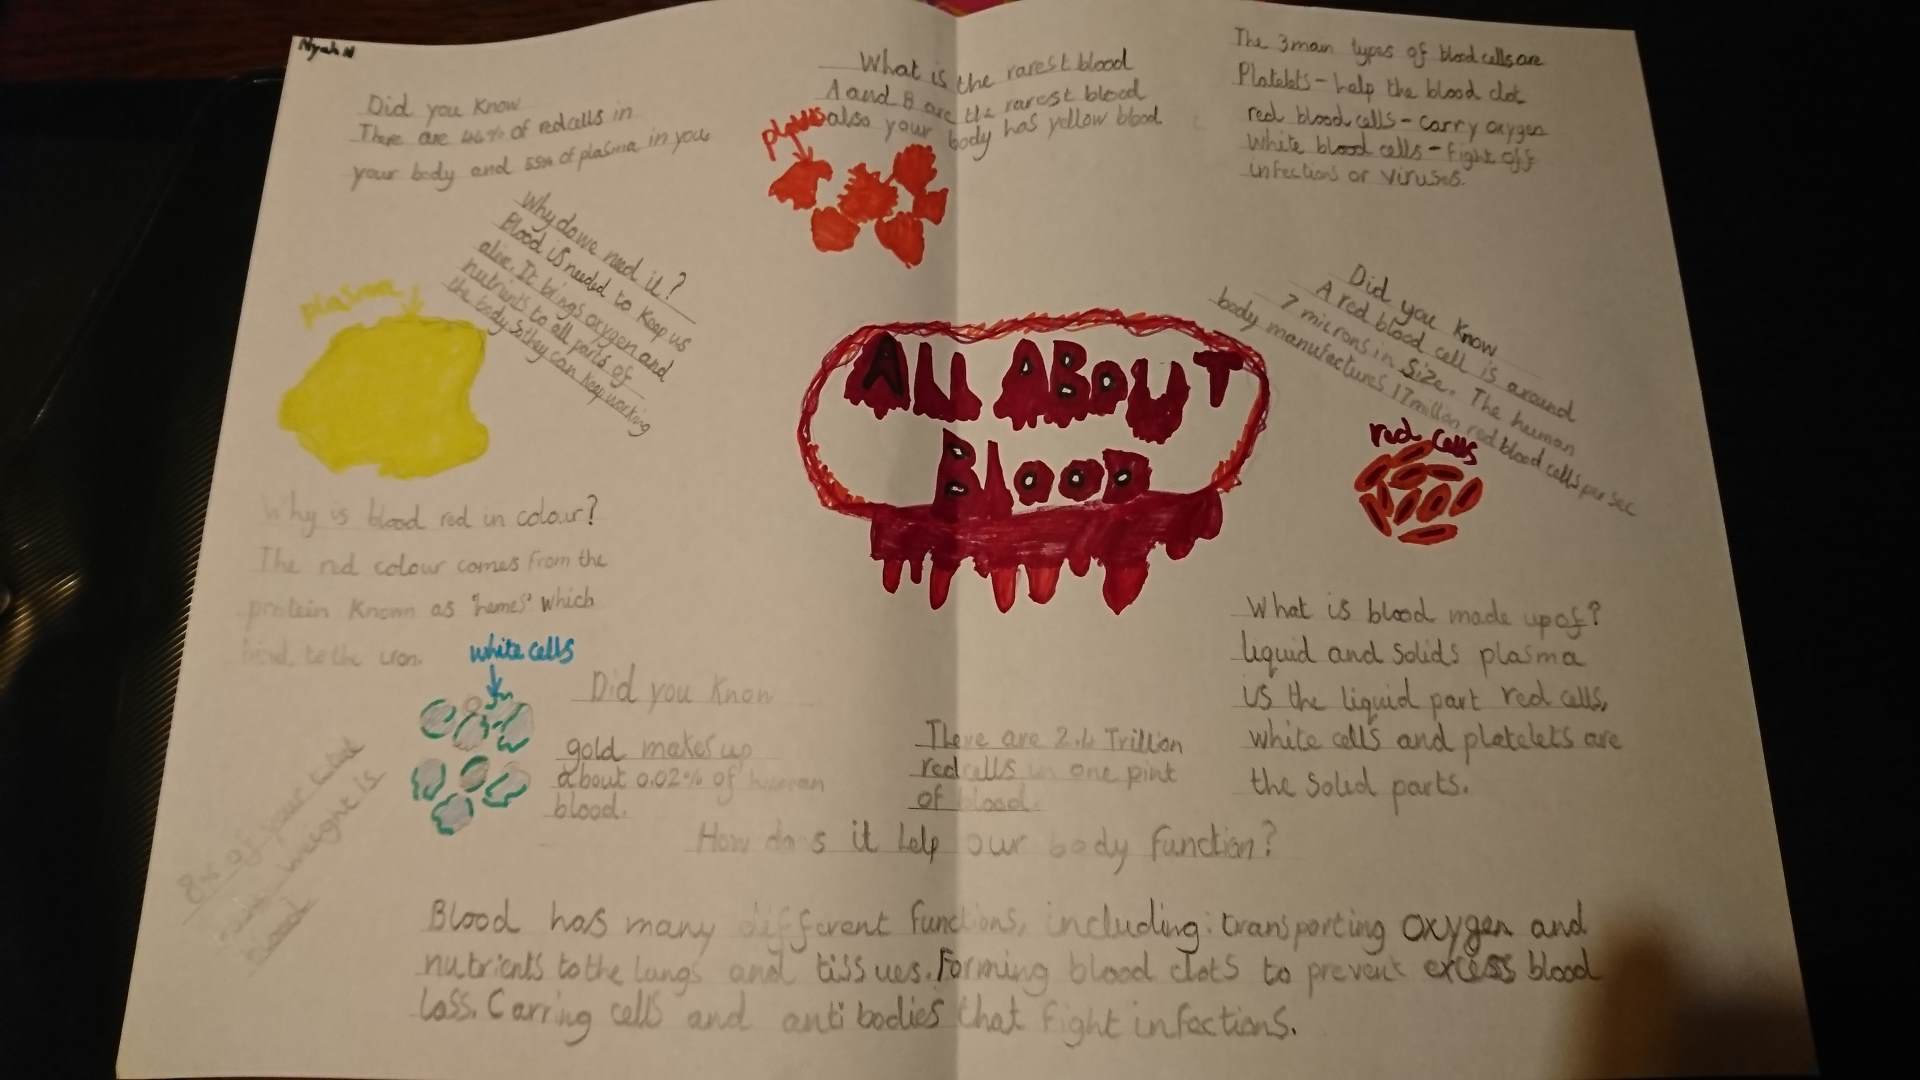 Nyah N
Did you Know
There are 44% of redcells in
your body and 55% of plasma in you
What is the rarest blood
A and B are the rarest blood
also your body has yellow blood
The 3 main types of blood cells are
Platelets - help the blood clot
red blood cells - carry oxygen
white blood cells - fight off
infections or viruses.
Why do we need it?
Blood is needed to keep us
alive. It brings oxygen and
nutrients to all parts of
the body so they can keep working
plasma
Did you Know
A red blood cell is around
7 microns in size. The human
body manufactures 17 million red blood cells per sec
red cells
All About
Blood
Why is blood red in colour?
The red colour comes from the
protein known as 'hemes' which
bind to the iron.
white cells
Did you Know
gold makes up
about 0.02% of human
blood.
There are 2.4 Trillion
redcells in one pint
of blood.
What is blood made up of?
liquid and solids plasma
is the liquid part red cells,
white cells and platelets are
the solid parts.
8% of your
weight is
blood
How does it help our body function?
Blood has many different functions, including: transporting oxygen and
nutrients to the lungs and tissues. Forming blood clots to prevent excess blood
loss. Carring cells and anti bodies that fight infections.